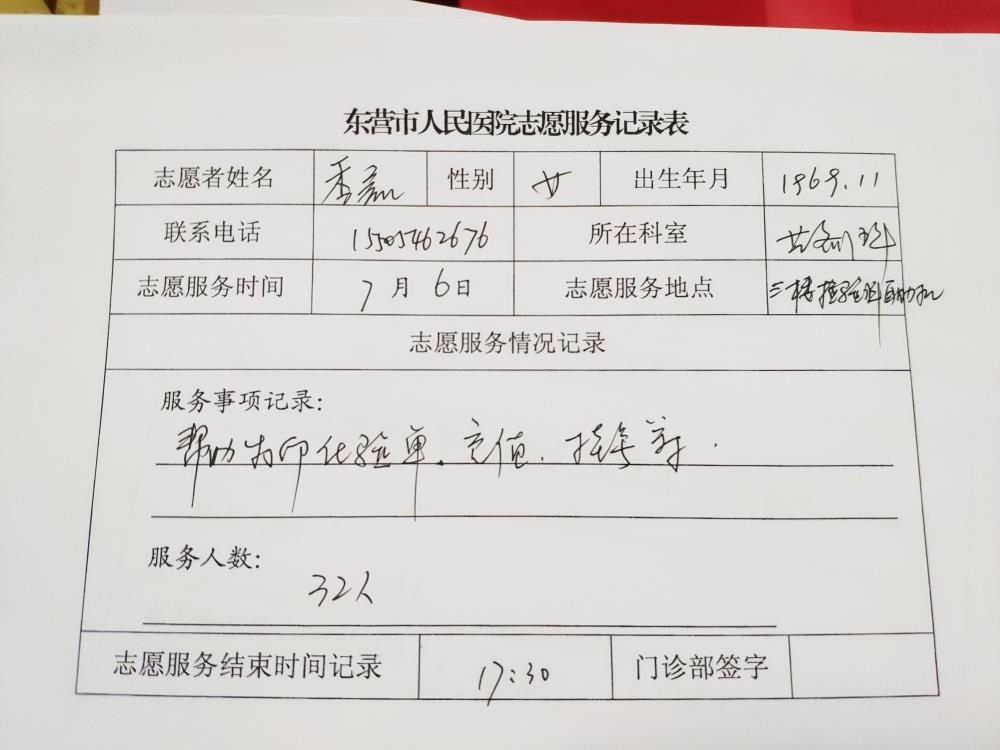 东营市人民医院志愿服务记录表
志愿者姓名 性别 女 出生年月 1969.11
联系电话 15505462676 所在科室
志愿服务时间 7月6日 志愿服务地点 三楼检验科自助机
志愿服务情况记录
服务事项记录:
帮助打印化验单、充值、挂号等.
服务人数:
32人
志愿服务结束时间记录 17:30 门诊部签字